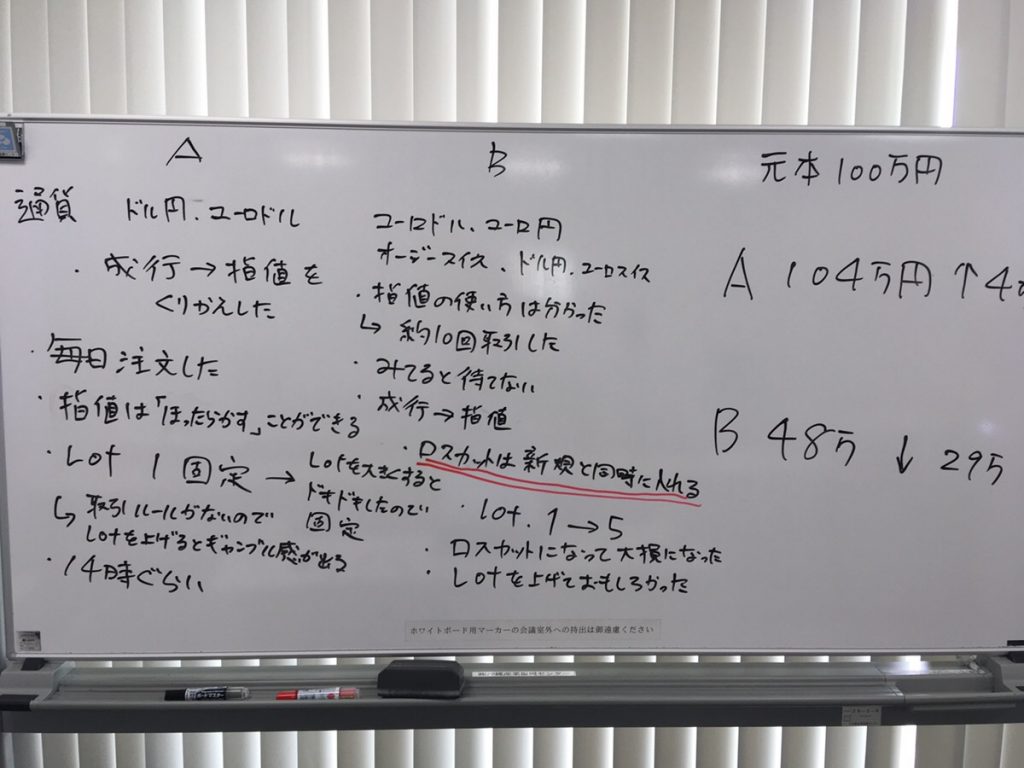 A
通貨 ドル円、ユーロドル
・成行→指値を
くりかえした
・毎日注文した
・指値は「ほったらかす」ことができる
・Lot 1 固定→
Lotを大きくすると
ドキドキしたので
固定
↳取引ルールがないので
Lotを上げるとギャンブル感が出る
・14時ぐらい
B
ユーロドル、ユーロ円
オージースイス、ドル円、ユーロスイス
・指値の使い方は分かった
↳約10回取引した
・みてると待てない
・成行→指値
・ロスカットは新規と同時に入れる
・lot. 1→5
・ロスカットになって大損になった
・Lotを上げておもしろかった
元本100万円
A 104万円 ↑4
B 48万 ↓ 295
ホワイトボード用マーカーの会議室外への持出は御遠慮ください